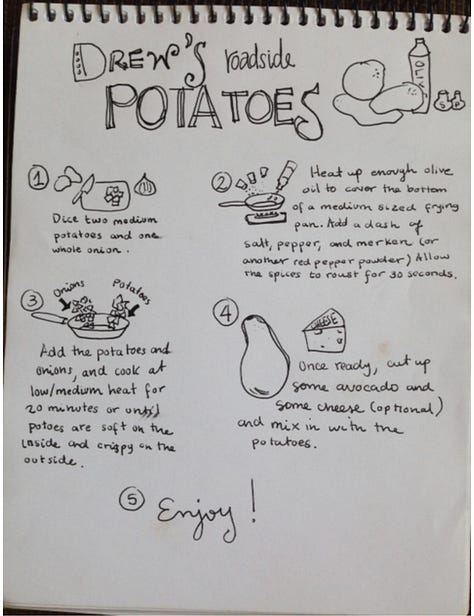 DREW'S roadside
POTATOES
OLIVE
S P
1
Dice two medium
potatoes and one
whole onion.
2
Heat up enough olive
oil to cover the bottom
of a medium sized frying
pan. Add a dash of
salt, pepper, and merken (or
another red pepper powder) Allow
the spices to roast for 30 seconds.
3
Onions Potatoes
Add the potatoes and
onions, and cook at
low/medium heat for
20 minutes or until
potoes are soft on the
inside and crispy on the
outside.
4
CHEESE
Once ready, cut up
some avocado and
some cheese (optional)
and mix in with the
potatoes.
5 Enjoy!